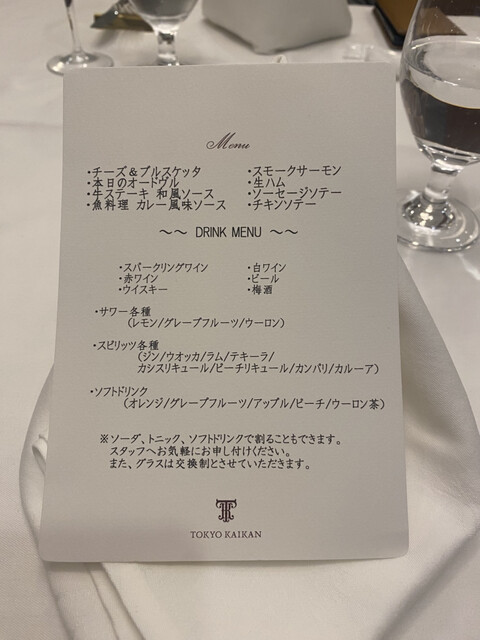 Menu
・チーズ＆ブルスケッタ ・スモークサーモン
・本日のオードヴル ・生ハム
・牛ステーキ 和風ソース ・ソーセージソテー
・魚料理 カレー風味ソース ・チキンソテー
～～ DRINK MENU ～～
・スパークリングワイン ・白ワイン
・赤ワイン ・ビール
・ウイスキー ・梅酒
・サワー各種
(レモン/グレープフルーツ/ウーロン)
・スピリッツ各種
(ジン/ウオッカ/ラム/テキーラ/
カシスリキュール/ピーチリキュール/カンパリ/カルーア)
・ソフトドリンク
(オレンジ/グレープフルーツ/アップル/ピーチ/ウーロン茶)
※ソーダ、トニック、ソフトドリンクで割ることもできます。
スタッフへお気軽にお申し付けください。
また、グラスは交換制とさせていただきます。
TOKYO KAIKAN